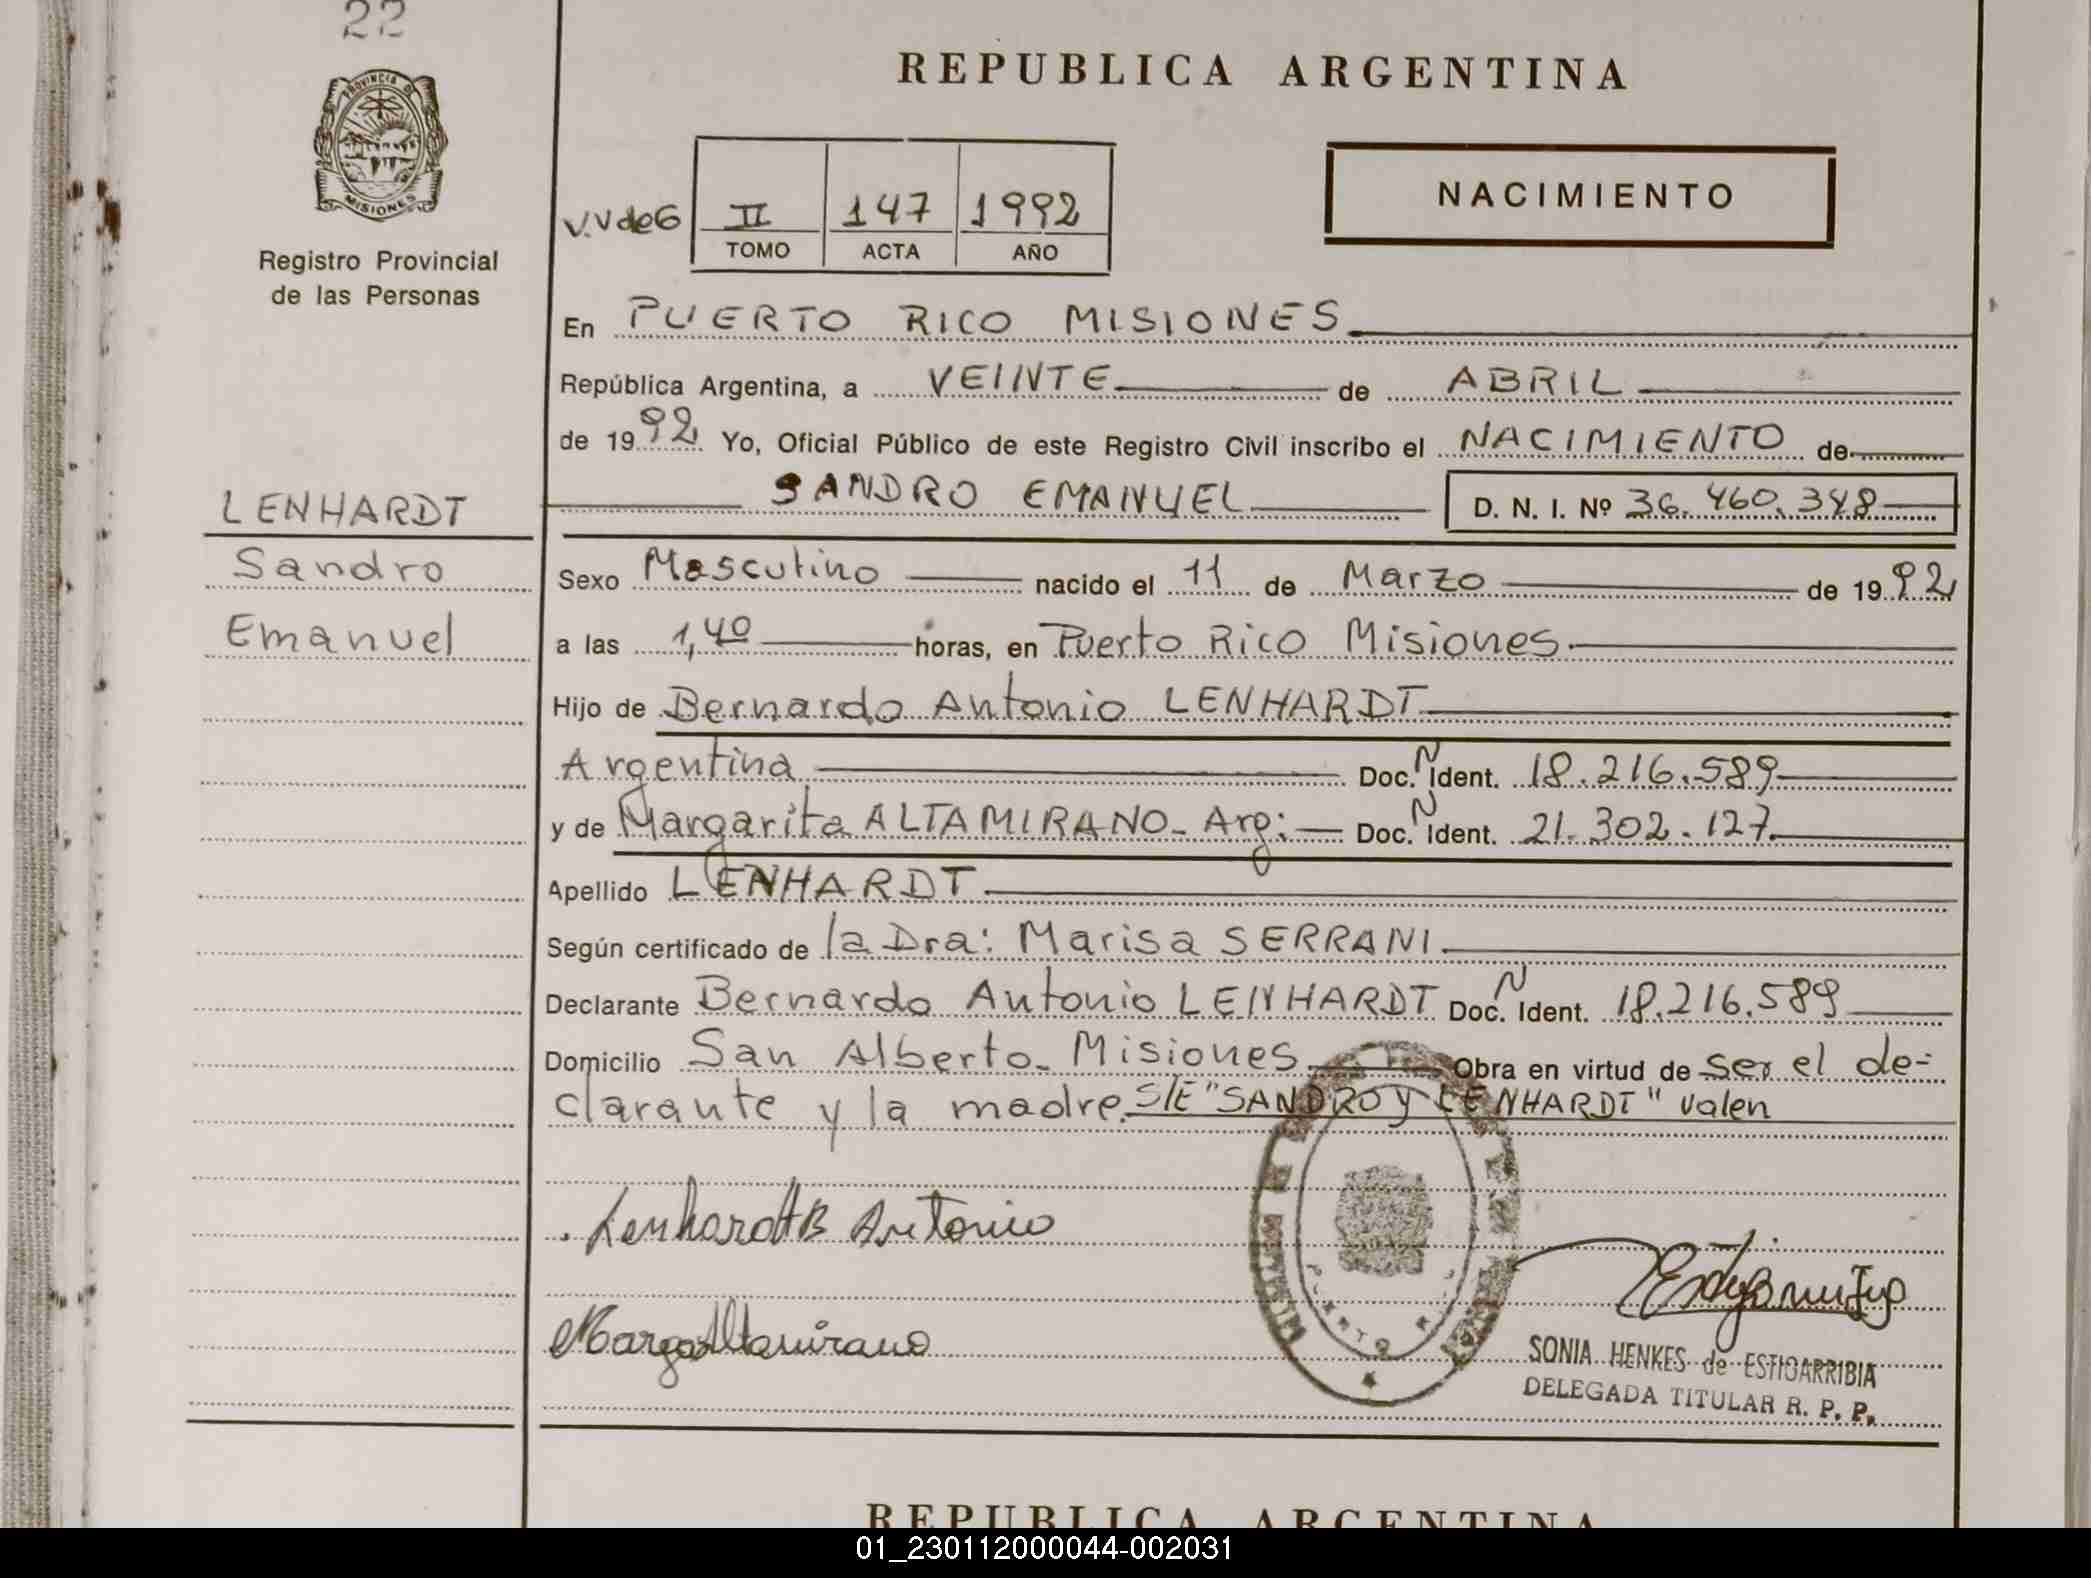 22
REPUBLICA ARGENTINA
PROVINCIA DE
MISIONES
Registro Provincial
de las Personas
V.V de G
II 147 1992
TOMO ACTA AÑO
NACIMIENTO
En PUERTO RICO MISIONES
República Argentina, a VEINTE de ABRIL
de 1992 Yo, Oficial Público de este Registro Civil inscribo el NACIMIENTO de
SANDRO EMANUEL D. N. I. Nº 36.460.348
LENHARDT
Sandro
Emanuel
Sexo Masculino nacido el 11 de Marzo de 1992
a las 1,40 horas, en Puerto Rico Misiones
Hijo de Bernardo Antonio LENHARDT
Argentina Doc. N Ident. 18.216.589
y de Margarita ALTAMIRANO - Arg: Doc. N Ident. 21.302.127
Apellido LENHARDT
Según certificado de la Dra: Marisa SERRANI
Declarante Bernardo Antonio LENHARDT Doc. N Ident. 18.216.589
Domicilio San Alberto - Misiones Obra en virtud de ser el de-
clarante y la madre. S/E "SANDRO y LENHARDT" valen
Lenhardt B Antonio
Marga Altamirano
SONIA HENKES de ESTIGARRIBIA
DELEGADA TITULAR R. P. P.
REPUBLICA ARGENTINA
01_230112000044-002031